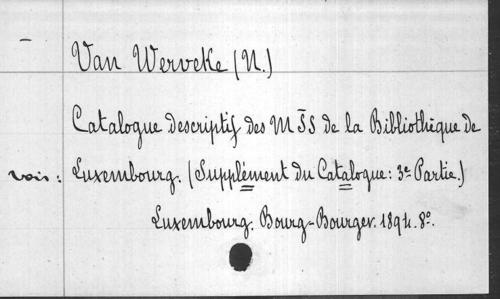 Van Werveke (N.)
Catalogue descriptif des MSS de la Bibliothèque de
vois: Luxembourg. (Supplément du Catalogue: 3e Partie.)
Luxembourg. Bourg-Bourger. 1894. 8o.